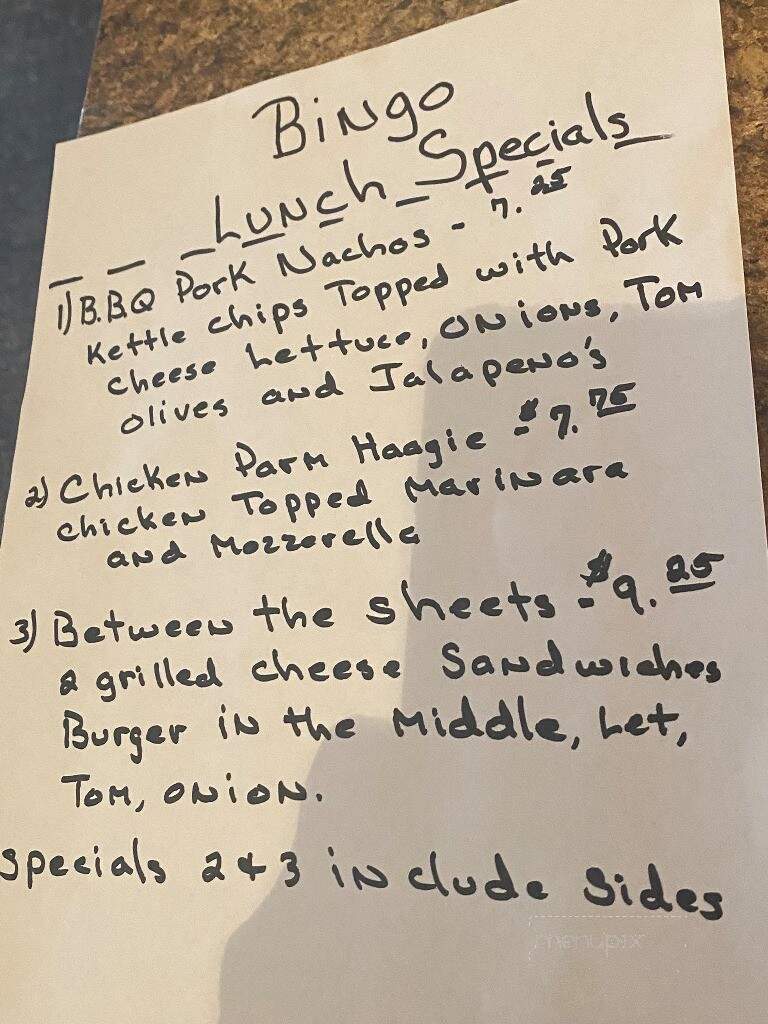 Bingo
Lunch Specials
1) B.B.Q Pork Nachos - 7.25
Kettle chips Topped with Pork
cheese Lettuce, ONions, Tom
olives and Jalapeno's
2) Chicken Parm Haagie - $7.75
chicken Topped Marinara
and Mozzorella
3) Between the sheets - $9.25
2 grilled cheese Sandwiches
Burger in the Middle, Let,
Tom, ONiON.
Specials 2 & 3 include Sides
menupix